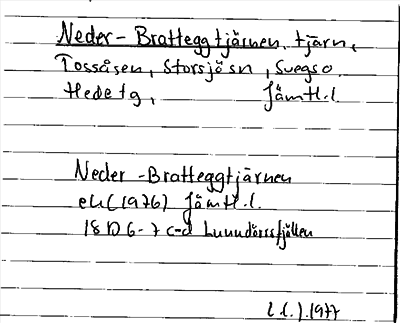 Neder-Bratteggtjärnen, tjärn,
Tossåsen, Storsjö sn, Svegs o.
Hede tg, Jämtl.l.
Neder-Bratteggtjärnen
ek (1976) Jämtl.l.
18D 6-7 c-d Lunndörrsfjällen
1977